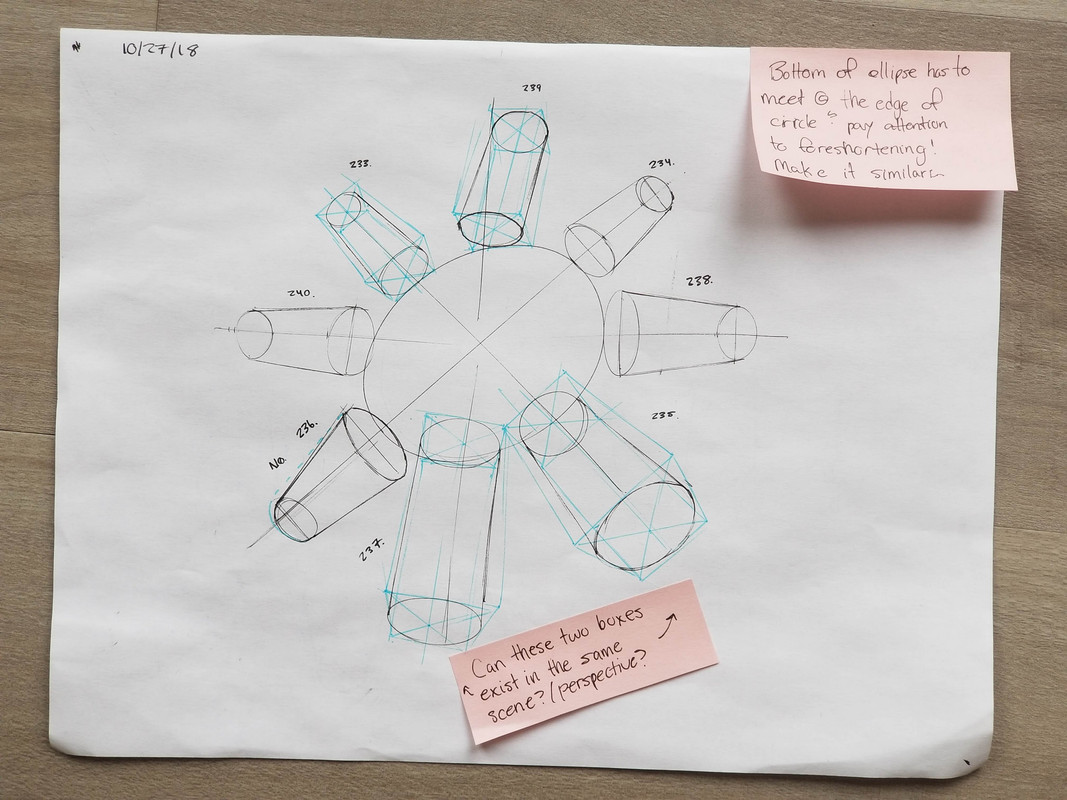 10/27/18
239
Bottom of ellipse has to
meet @ the edge of
circle & pay attention
to foreshortening!
Make it similar
233.
234.
240.
238.
236.
No.
235.
237.
Can these two boxes
exist in the same
scene?/perspective?